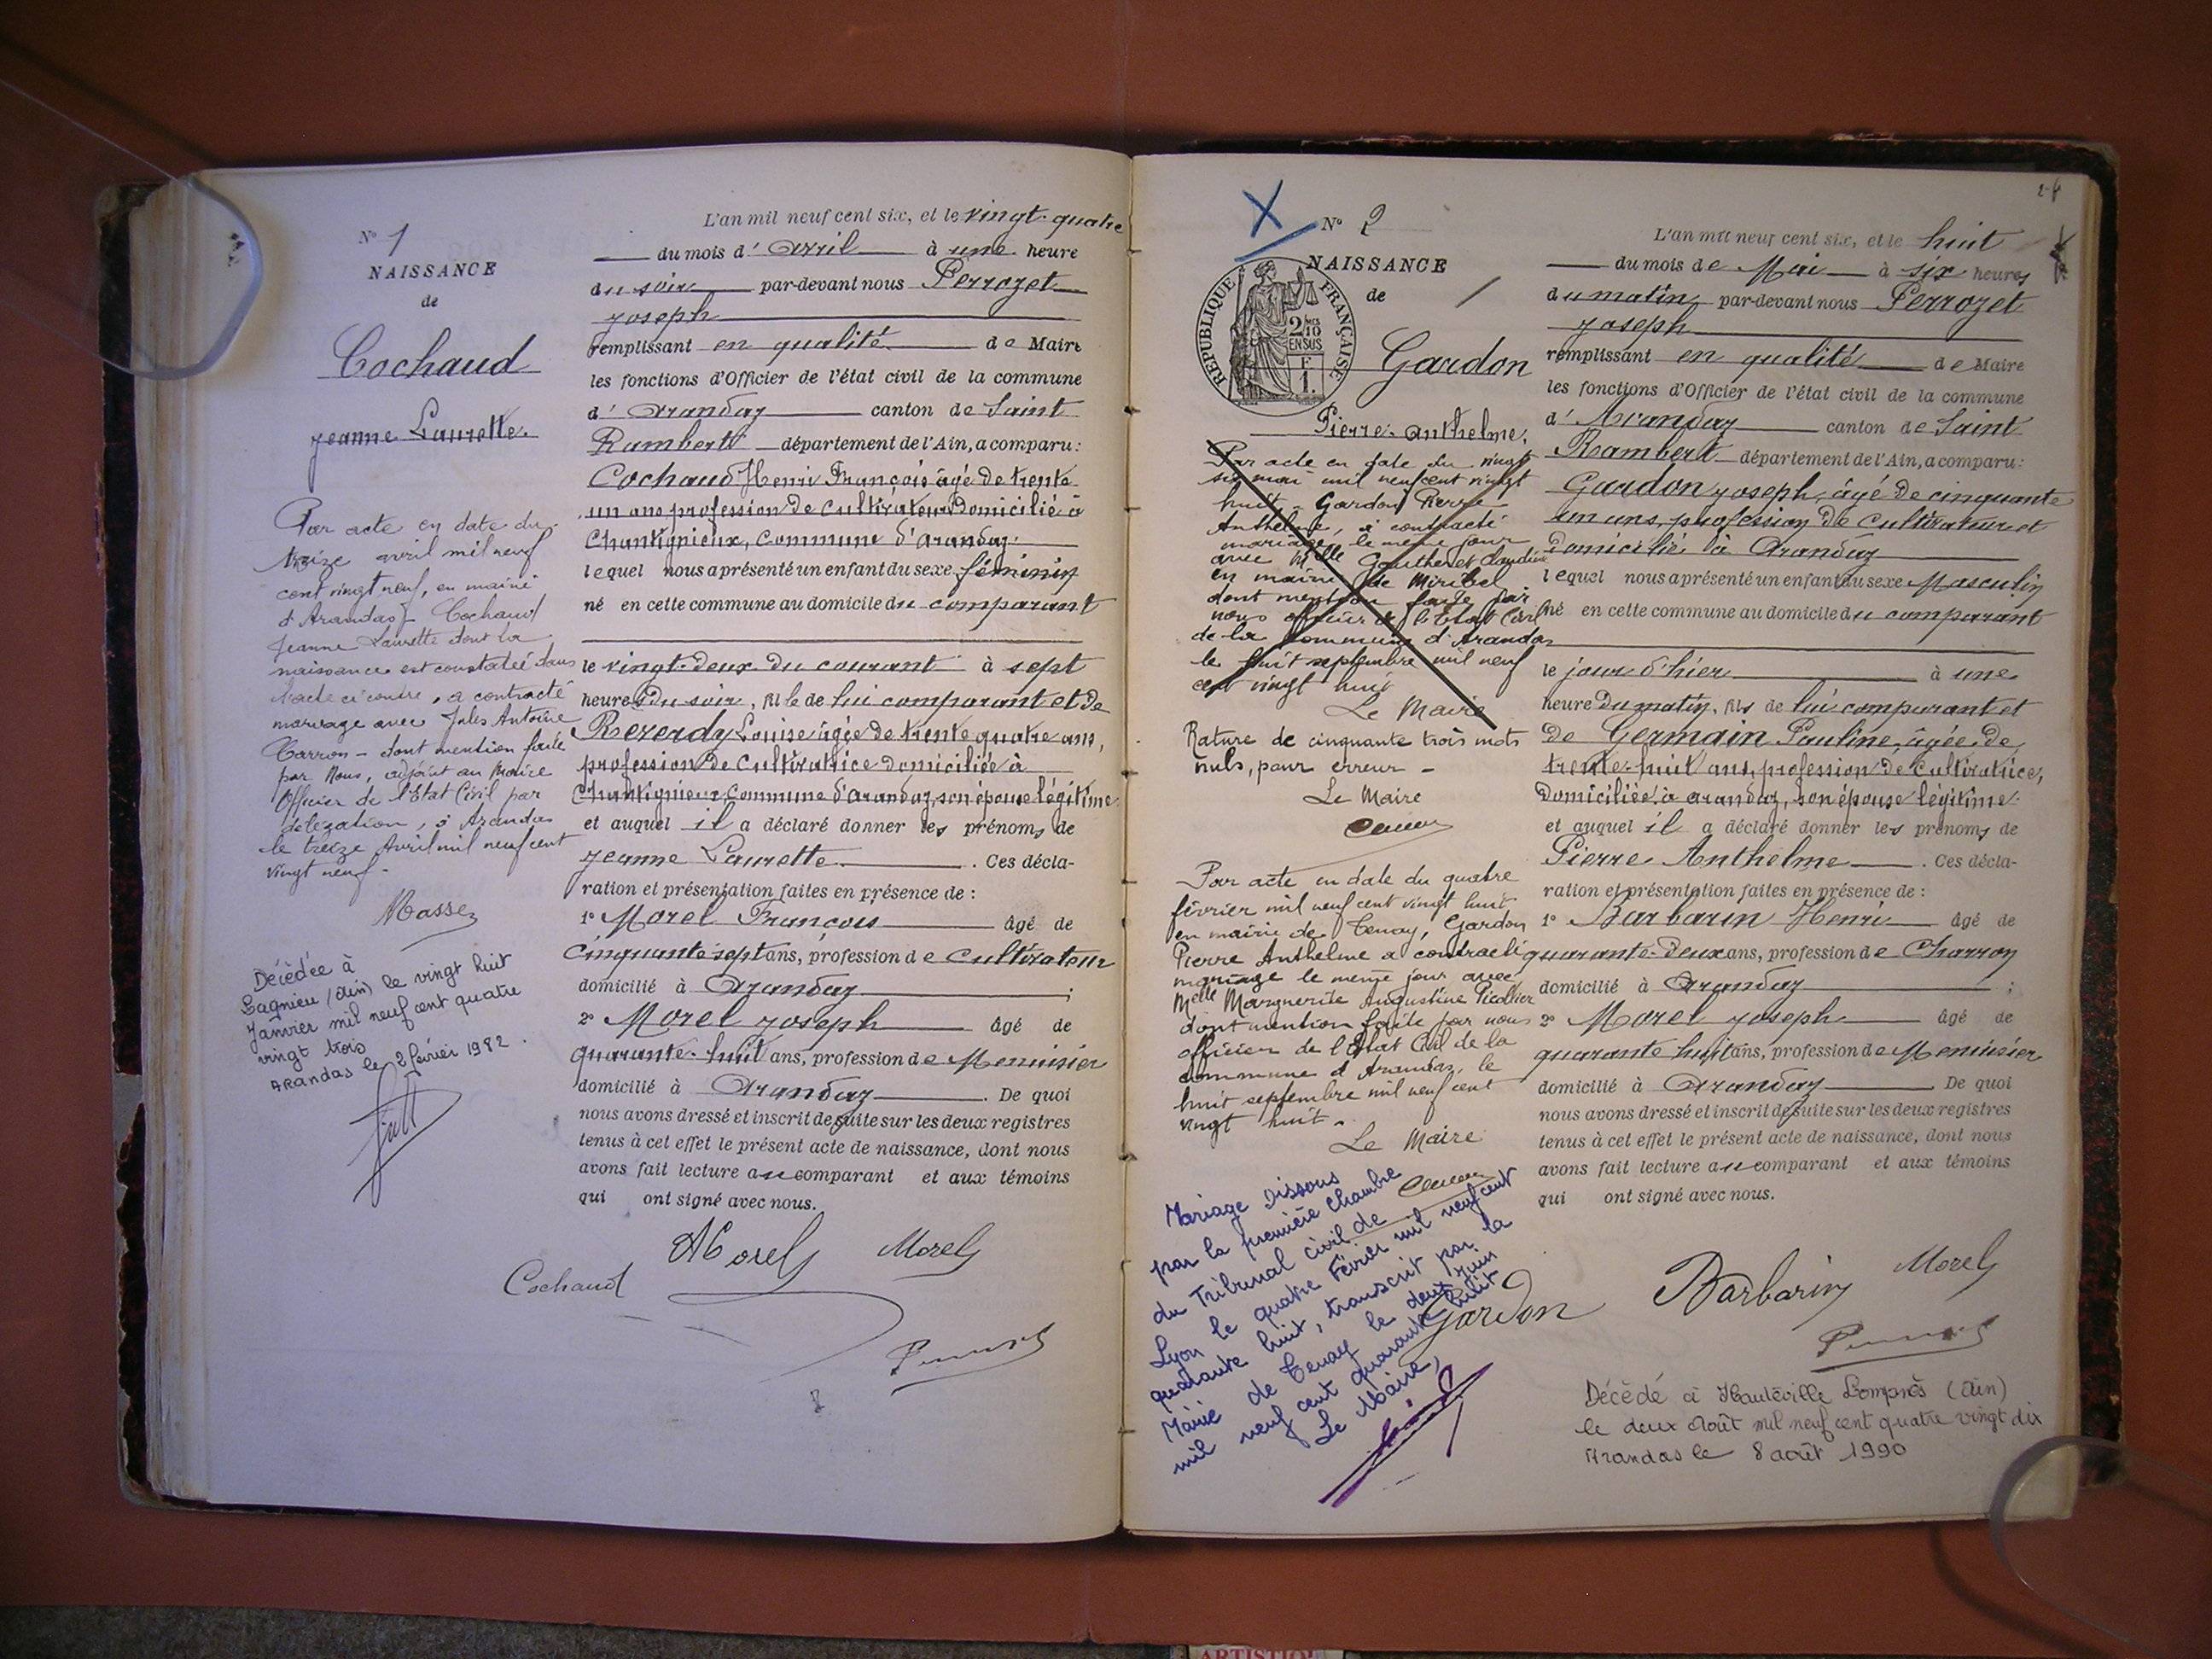 N° 1
NAISSANCE
de
Cochaud
Jeanne Laurette.
Par acte en date du
treize avril mil neuf
cent vingt neuf, en mairie
d'Arandas, Cochaud
Jeanne Laurette dont la
naissance est constatée dans
l'acte ci contre, a contracté
mariage avec Jules Antoine
Carron - dont mention faite
par Nous, adjoint au Maire
Officier de l'Etat Civil par
délégation, à Arandas
le treize Avril mil neuf cent
vingt neuf -
Décèdée à
Lagnieu (Ain) le vingt huit
Janvier mil neuf cent quatre
vingt trois
Arandas le 2 février 1982.
L'an mil neuf cent six, et le vingt-quatre
du mois d'Avril à une heure
du soir par-devant nous Perrozet
Joseph
remplissant en qualité de Maire
les fonctions d'Officier de l'état civil de la commune
d'Arandaz canton de Saint
Rambert département de l'Ain, a comparu :
Cochaud Henri François âgé de trente
un ans profession de Cultivateur Domicilié à
Chantignieux, Commune d'Arandaz.
lequel nous a présenté un enfant du sexe féminin
né en cette commune au domicile du comparant
le vingt-deux du courant à sept
heures du soir, fille de lui comparant et de
Reverdy Louise âgée de trente quatre ans,
profession de Cultivatrice domiciliée à
Chantignieux, Commune d'Arandaz, son épouse légitime
et auquel il a déclaré donner les prénoms de
Jeanne Laurette. Ces décla-
ration et présentation faites en présence de :
1° Morel François âgé de
cinquante sept ans, profession de Cultivateur
domicilié à Arandaz ;
2° Morel Joseph âgé de
quarante-huit ans, profession de Menuisier
domicilié à Arandaz. De quoi
nous avons dressé et inscrit de suite sur les deux registres
tenus à cet effet le présent acte de naissance, dont nous
avons fait lecture au comparant et aux témoins
qui ont signé avec nous.
Morel Morel
Cochaud
N° 2
NAISSANCE
de
RÉPUBLIQUE FRANÇAISE
2/10
EN SUS
F
1.
Gardon
Pierre-Anthelme.
Par acte en date du vingt
six mai mil neuf cent vingt
huit Gardon Pierre
Anthelme, a contracté
mariage, le même jour
avec Melle Gautheret Claudia
en mairie de Miribel
dont mention faite par
nous officier de l'Etat Civil
de la Commune d'Arandas
le huit septembre mil neuf
cent vingt huit
Le Maire
Rature de cinquante trois mots
nuls, pour erreur -
Le Maire
Par acte en date du quatre
février mil neuf cent vingt huit
en mairie de Tenay, Gardon
Pierre Anthelme a contracté
mariage le même jour avec
Melle Marguerite Augustine
dont mention faite par nous
officier de l'Etat Civil de la
commune d'Arandas, le
huit septembre mil neuf cent
vingt huit -
Le Maire
Mariage dissous
par la première chambre
du Tribunal civil de
Lyon le quatre Février mil neuf cent
quarante huit, transcrit par la
Mairie de Tenay le deux juin
mil neuf cent quarante huit
Le Maire,
L'an mil neuf cent six, et le huit
du mois de Mai à six heures
du matin par-devant nous Perrozet
Joseph
remplissant en qualité de Maire
les fonctions d'Officier de l'état civil de la commune
d'Arandaz canton de Saint
Rambert département de l'Ain, a comparu :
Gardon Joseph, âgé de cinquante
un ans, profession de Cultivateur et
Domicilié à Arandaz
lequel nous a présenté un enfant du sexe Masculin
né en cette commune au domicile du comparant
le jour d'hier à une
heure du matin, fils de lui comparant et
de Germain Pauline, âgée de
trente-huit ans, profession de Cultivatrice,
Domiciliée à Arandaz, son épouse légitime.
et auquel il a déclaré donner les prénoms de
Pierre Anthelme. Ces décla-
ration et présentation faites en présence de :
1° Barbarin Henri âgé de
quarante-deux ans, profession de Charron
domicilié à Arandaz ;
2° Morel Joseph âgé de
quarante huit ans, profession de Menuisier
domicilié à Arandaz De quoi
nous avons dressé et inscrit de suite sur les deux registres
tenus à cet effet le présent acte de naissance, dont nous
avons fait lecture au comparant et aux témoins
qui ont signé avec nous.
Gardon Barbarin Morel
Décèdé à Hauteville Lompnès (Ain)
le deux Août mil neuf cent quatre vingt dix
Arandas le 8 août 1990